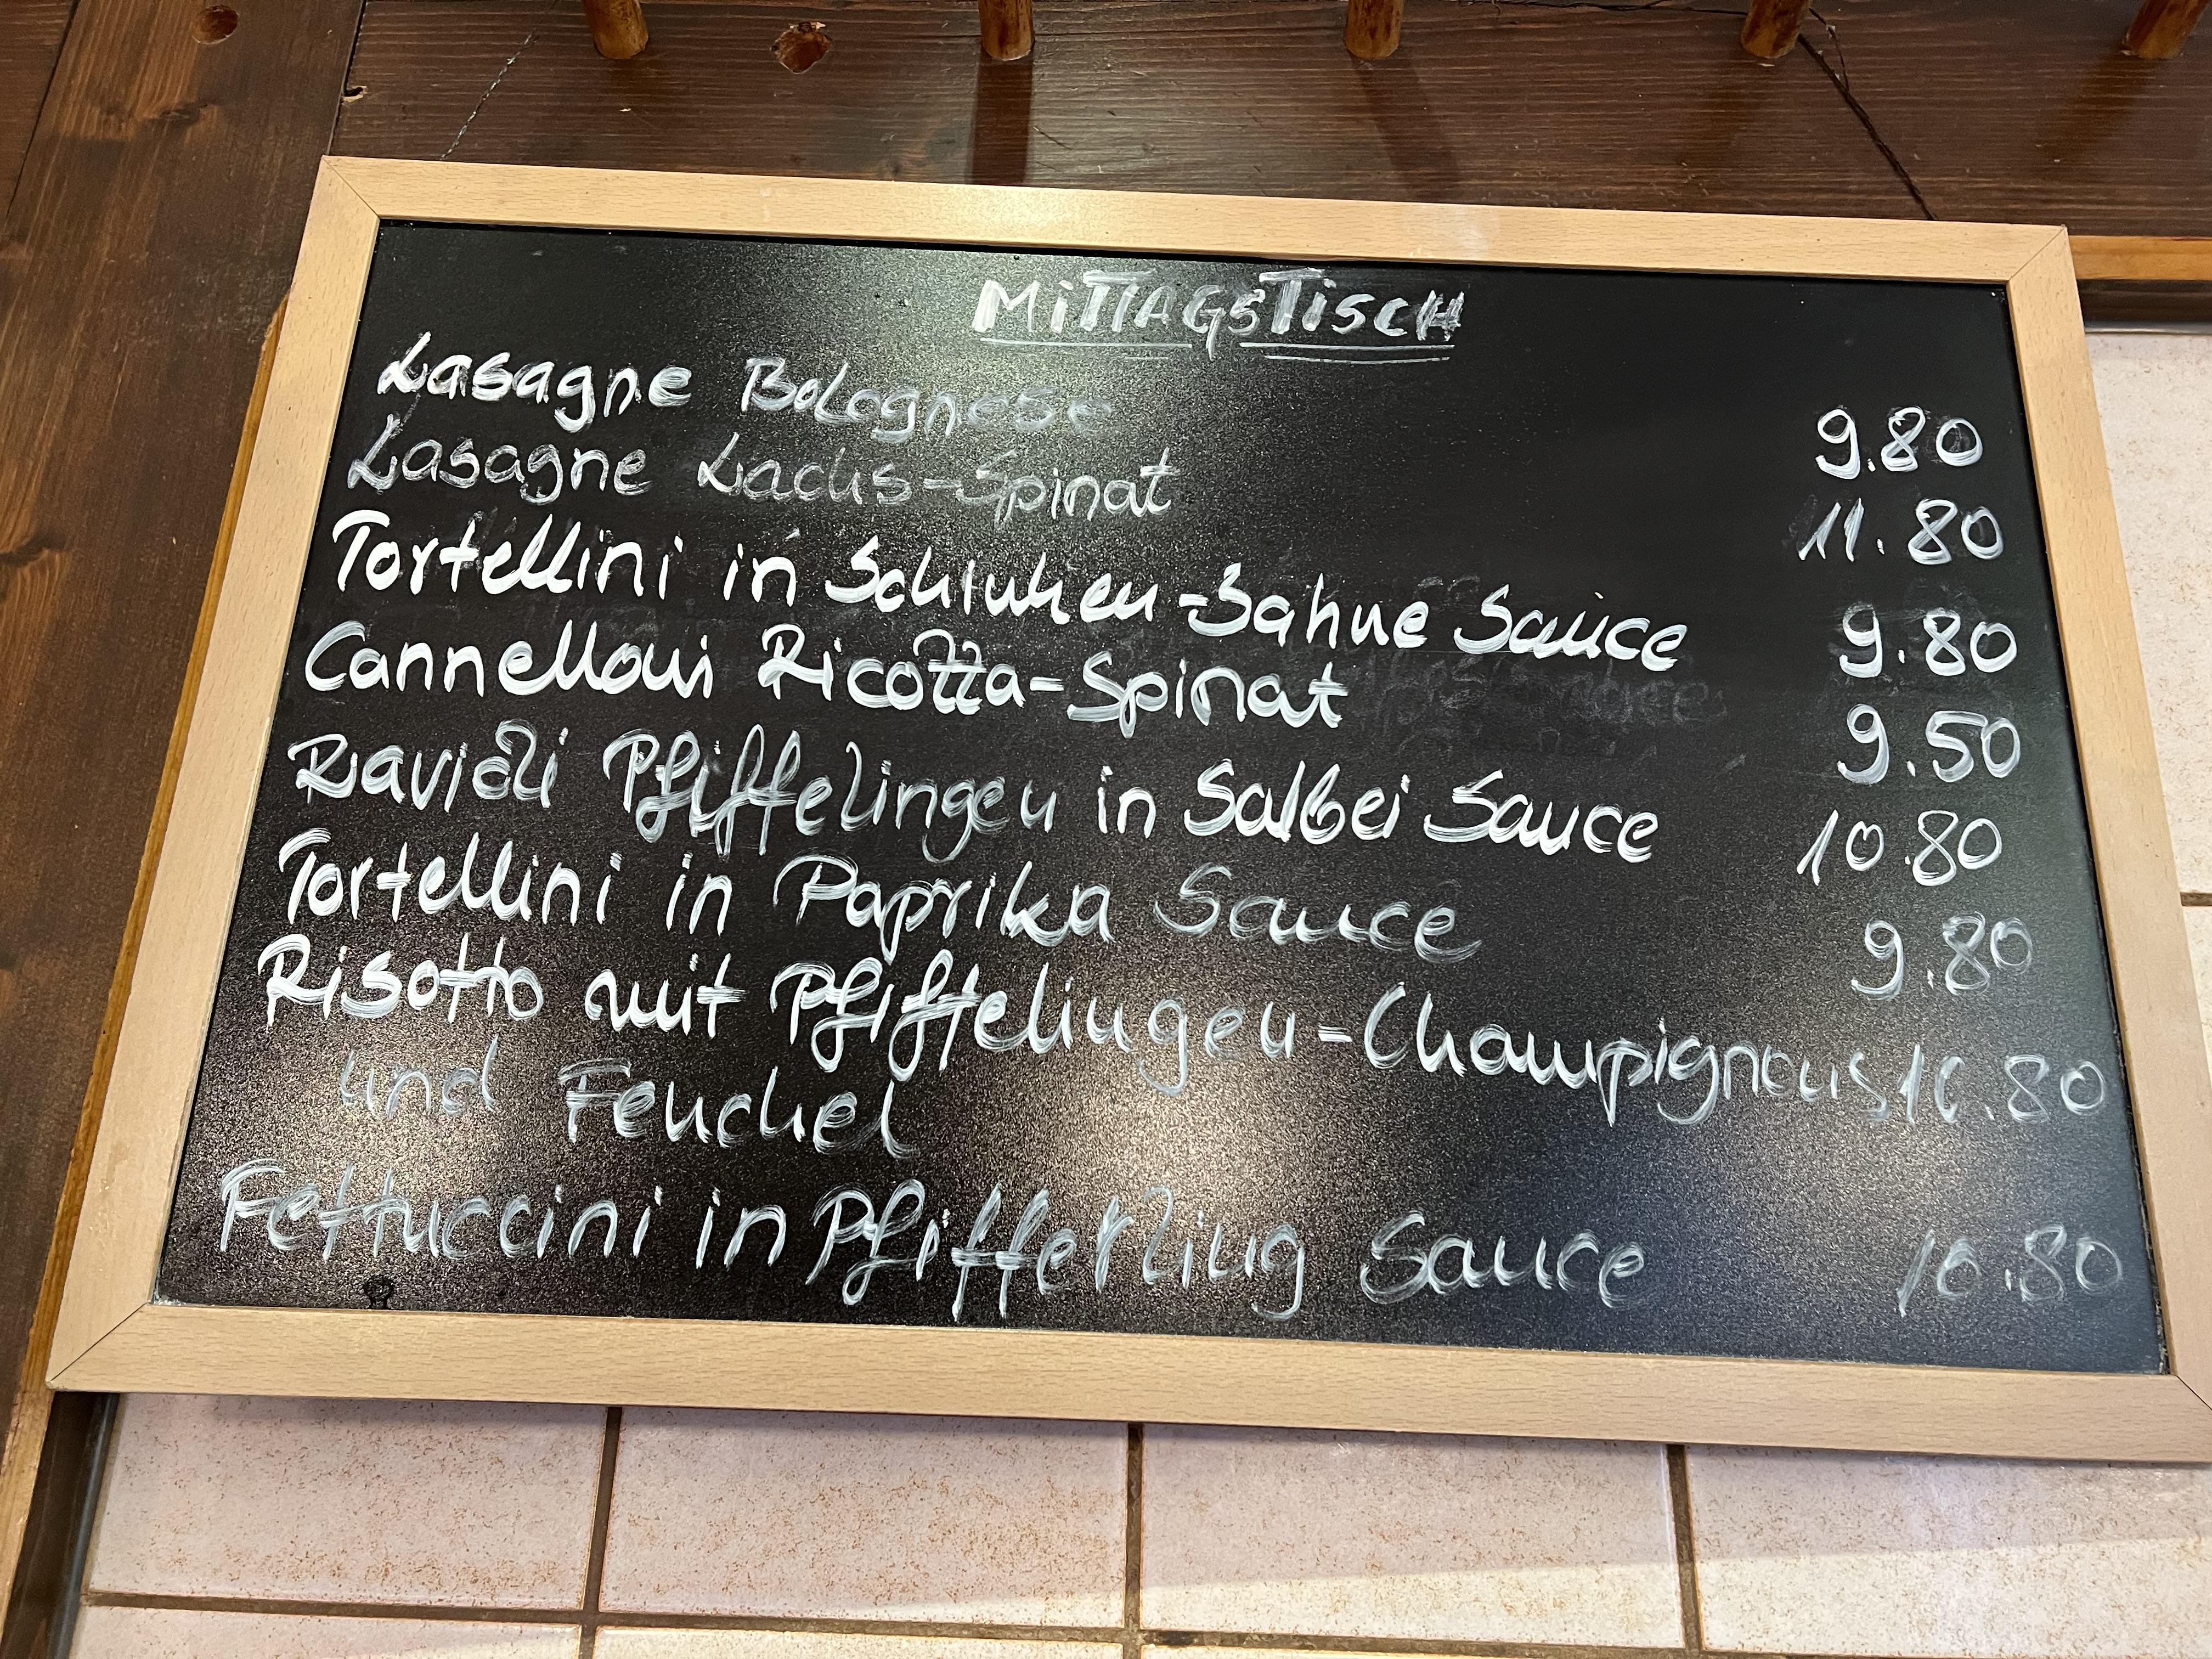 MITTAGSTISCH
Lasagne Bolognese 9.80
Lasagne Lachs-Spinat 11.80
Tortellini in Schinken-Sahne Sauce 9.80
Cannelloni Ricotta-Spinat 9.50
Ravioli Pfiffelingen in Salbei Sauce 10.80
Tortellini in Paprika Sauce 9.80
Risotto mit Pfiffelingen-Champignons 10.80
und Fenchel
Fettuccini in Pfifferling Sauce 10.80